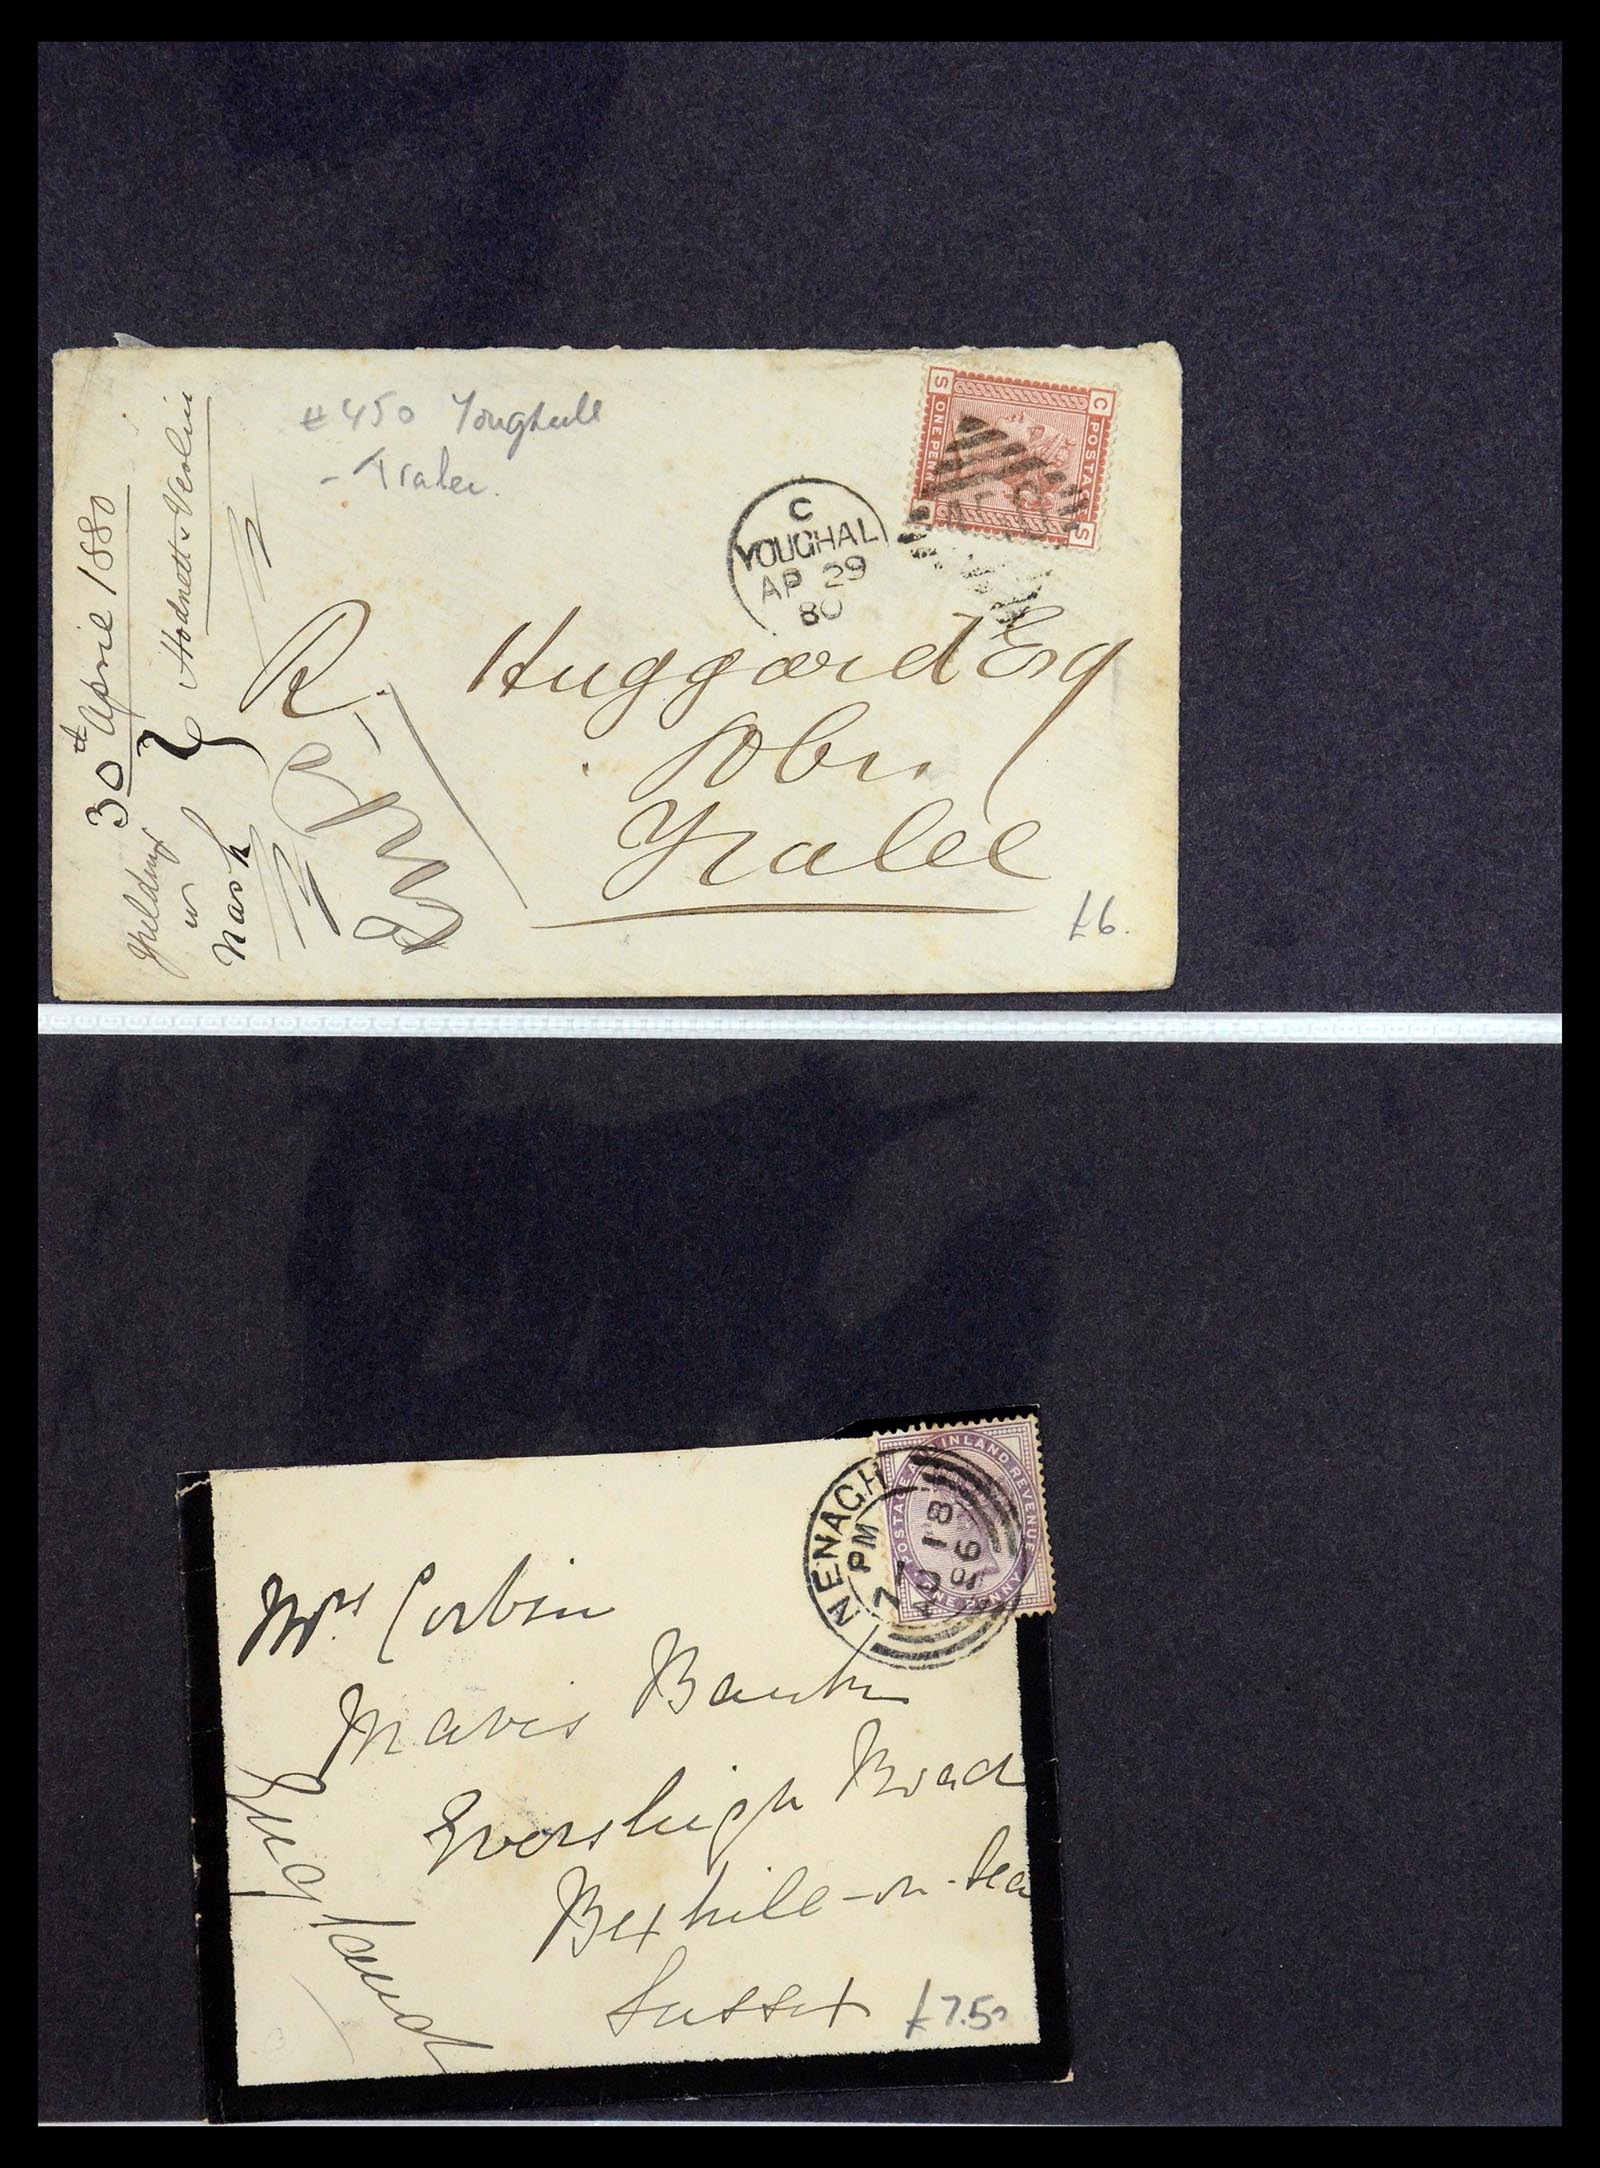 # 450 Youghall
- Tralee.
C
YOUGHAL
AP 29
80
S C
ONE PENN
POSTAGE
S
30th April 1880
Hodnett & Verlin
Nash
R. Huggard Esq
Solr.
Tralee
£6.
POSTAGE & INLAND REVENUE
ONE PENNY
NENAGH
7 PM
18
96
Mrs. Corbin
Mavis Bank
Eversleigh Road
Bexhill-on-Sea
Sussex
£7.50
England